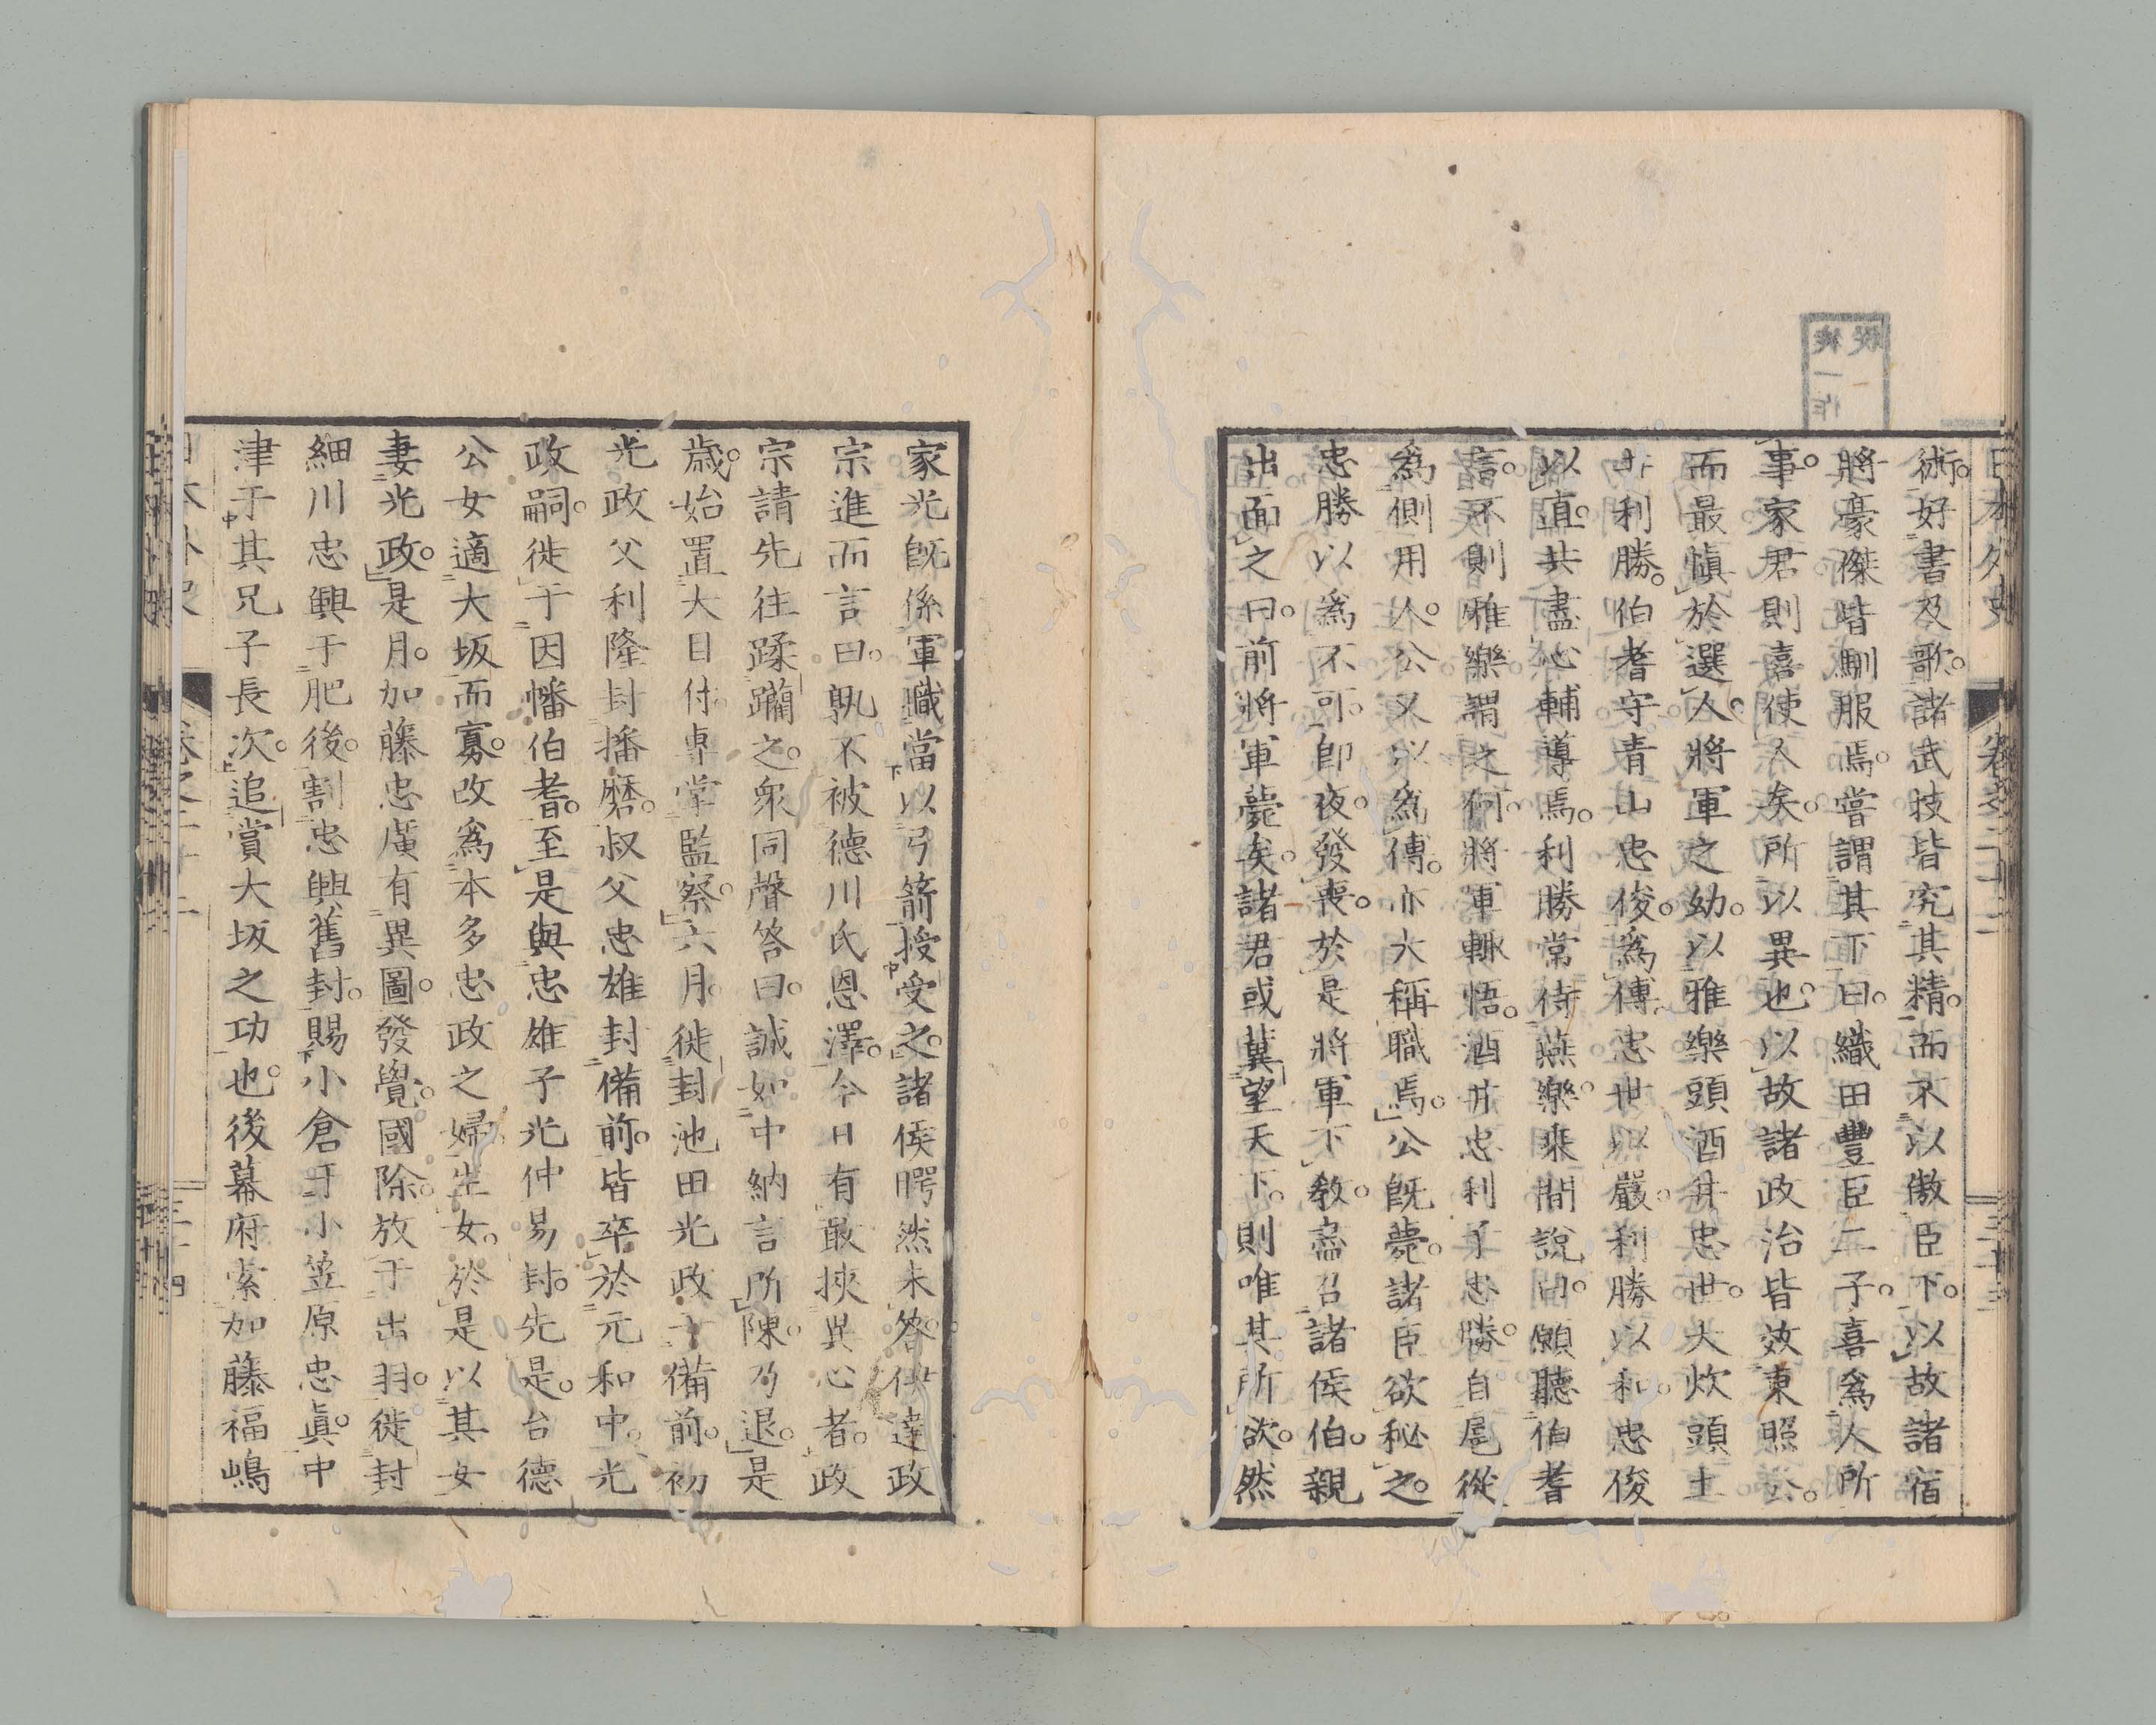 術。好書及歌。諸武技皆究其精。而不以傲臣下。以故諸宿
將豪傑皆馴服焉。嘗謂其下曰。織田豐臣二子。喜爲人所
事。家君則喜使人矣。所以異也。以故諸政治皆效東照公。
而最愼於選人。將軍之幼。以雅樂頭酒井忠世。大炊頭土
井利勝。伯耆守青山忠俊。爲傅。忠世以嚴。利勝以和。忠俊
以直。共盡心輔導焉。利勝常侍燕樂。乘間說曰。願聽伯耆
言。不則雅樂謂之何。將軍輒悟。酒井忠利子忠勝。自扈從
爲側用人。公又以爲傅。亦大稱職焉。公既薨。諸臣欲秘之。
忠勝以爲不可。卽夜發喪。於是將軍下敎。盡召諸侯伯。親
出面之曰。前將軍薨矣。諸君或冀望天下。則唯其所欲。然
日本外史
卷之二十二
三十三
家光既係軍職。當以弓箭授受之。諸侯愕然未答。伊達政
宗進而言曰。孰不被德川氏恩澤。今日有敢挾異心者。政
宗請先往蹂躪之。衆同聲答曰。誠如中納言所陳。乃退。是
歳。始置大目付。專掌監察。六月。徙封池田光政于備前。初
光政父利隆封播磨。叔父忠雄封備前。皆卒於元和中。光
政嗣。徙于因幡伯耆。至是與忠雄子光仲易封。先是。台德
公女適大坂而寡。改爲本多忠政之婦。生女。於是以其女
妻光政。是月。加藤忠廣有異圖。發覺。國除。放于出羽。徙封
細川忠興于肥後。割忠興舊封。賜小倉于小笠原忠眞。中
津于其兄子長次。追賞大坂之功也。後幕府索加藤福嶋
日本外史
卷之二十二
三十四